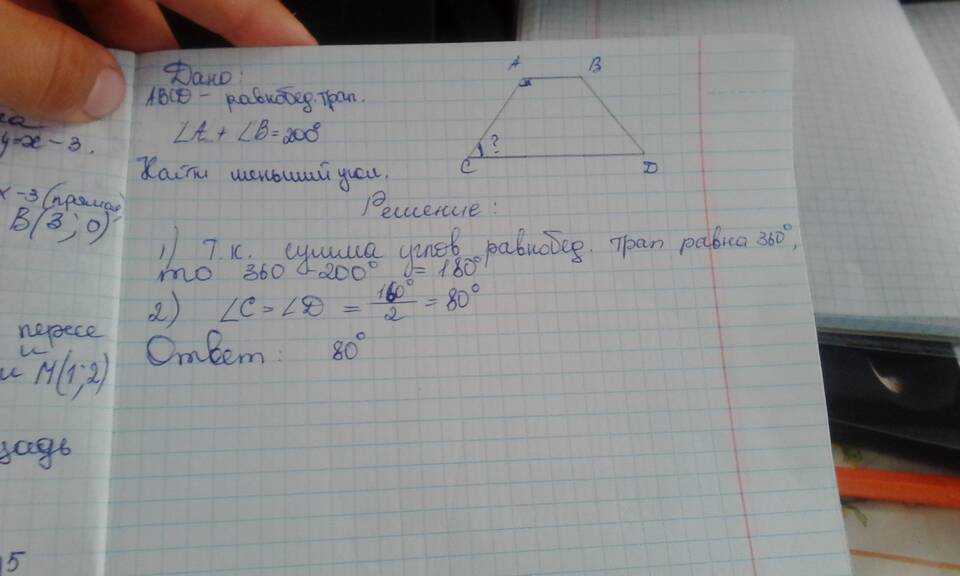 Дано:
ABCD - равнобед. трап.
∠A + ∠B = 200°
Найти меньший угол.
A B
?
C D
Решение:
1) Т.к. сумма углов равнобед. трап равна 360°,
то 360 - 200° = 180°
2) ∠C = ∠D = 160°/2 = 80°
Ответ: 80°
y=x-3.
x-3 (прямая)
B(3; 0)
пересе
и
и M(1; 2)
щадь
5